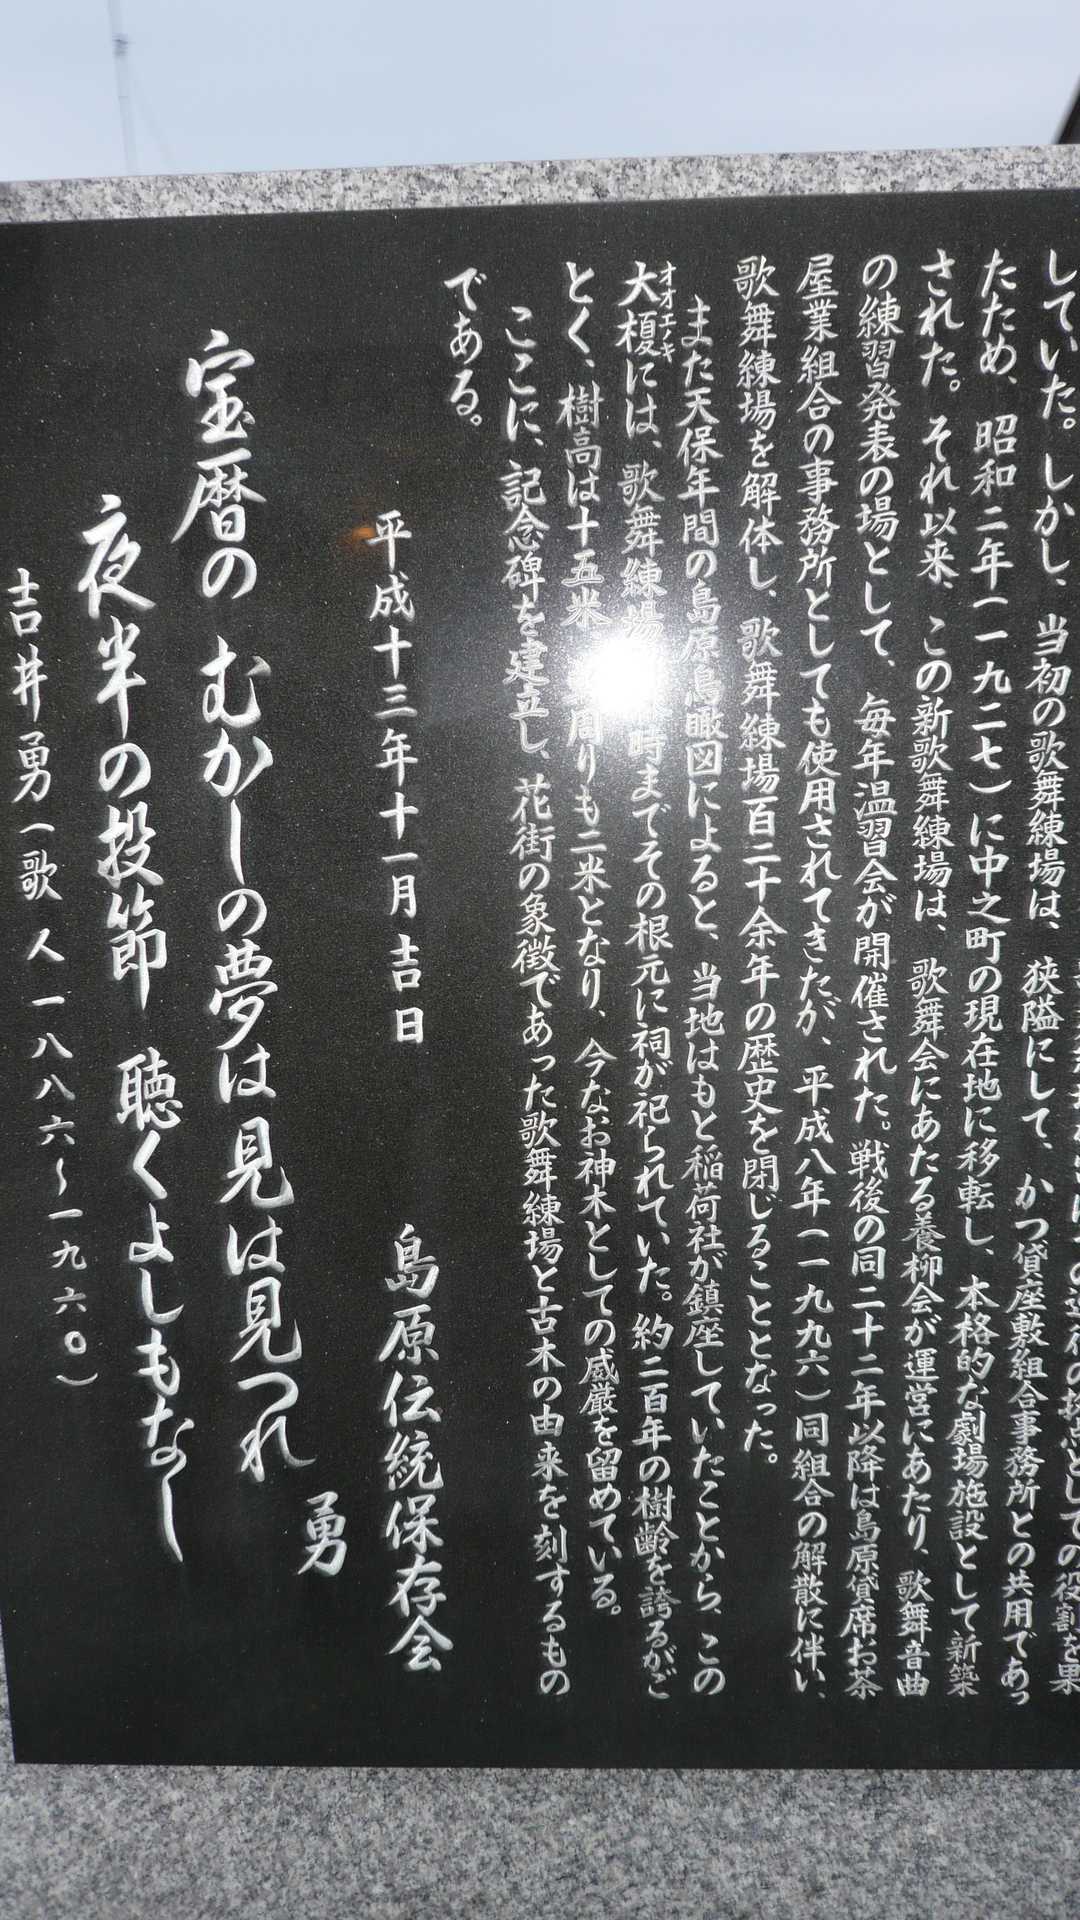 していた。しかし、当初の歌舞練場は、狭隘にして、かつ貸座敷組合事務所との共用であっ
たため、昭和二年(一九二七)に中之町の現在地に移転し、本格的な劇場施設として新築
された。それ以来、この新歌舞練場は、歌舞会にあたる養柳会が運営にあたり、歌舞音曲
の練習発表の場として、毎年温習会が開催された。戦後の同二十二年以降は島原貸席お茶
屋業組合の事務所としても使用されてきたが、平成八年(一九九六)同組合の解散に伴い、
歌舞練場を解体し、歌舞練場百二十余年の歴史を閉じることとなった。
また天保年間の島原鳥瞰図によると、当地はもと稲荷社が鎮座していたことから、この
大榎には、歌舞練場時までその根元に祠が祀られていた。約二百年の樹齢を誇るがご
オオエノキ
とく、樹高は十五米周りも二米となり、今なお神木としての威厳を留めている。
ここに、記念碑を建立し、花街の象徴であった歌舞練場と古木の由来を刻するもの
である。
平成十三年十一月吉日 島原伝統保存会
宝暦の むかしの夢は見は見つれ 勇
夜半の投節 聴くよしもなし
吉井勇(歌人一八八六~一九六〇)